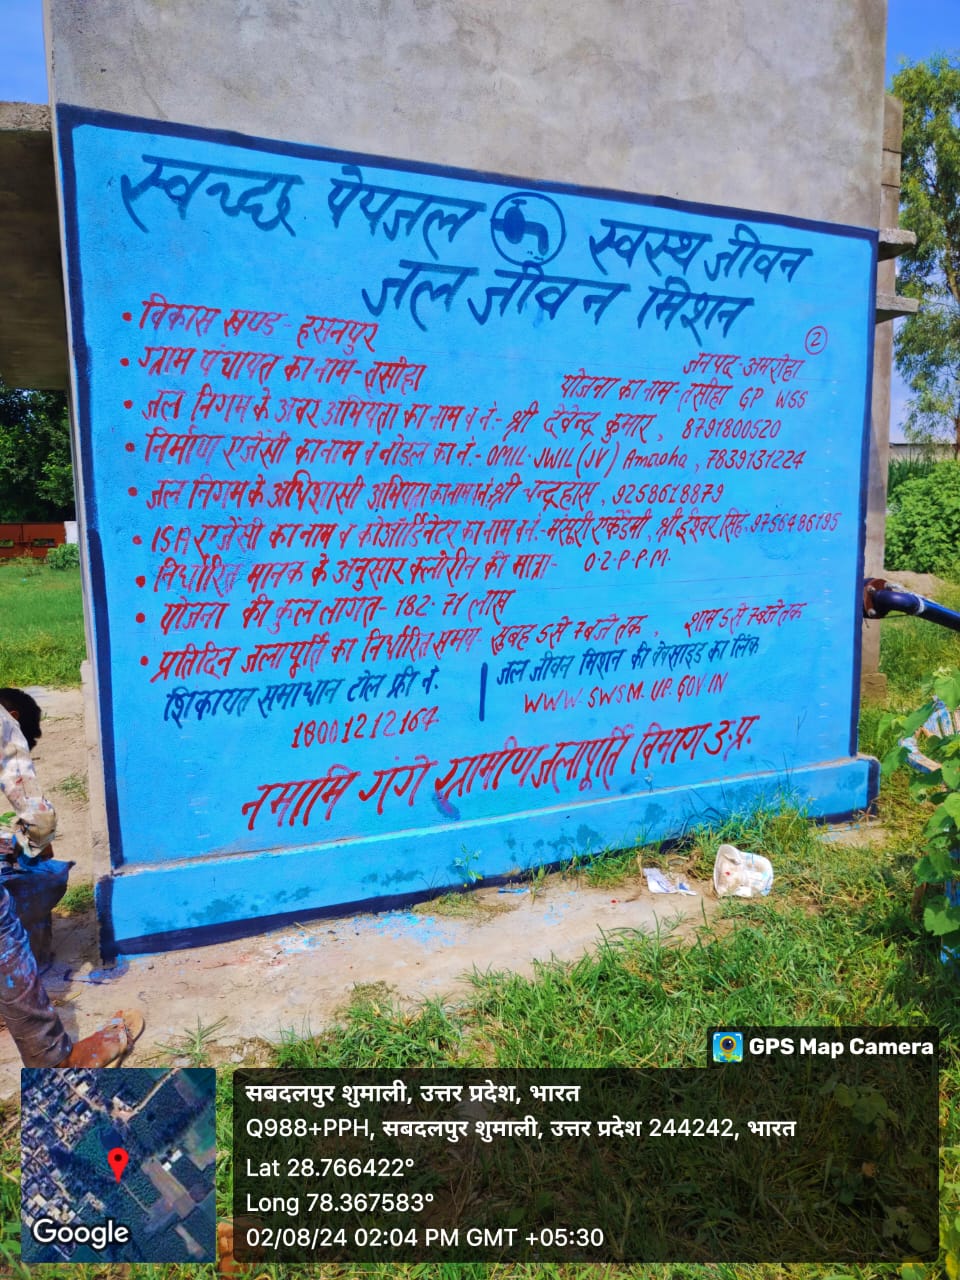 स्वच्छ पेयजल स्वस्थ जीवन
जल जीवन मिशन
2
• विकास खण्ड - हसनपुर
जनपद - अमरोहा
• ग्राम पंचायत का नाम - तसीहा
योजना का नाम - तसीहा GP WSS
• जल निगम के अवर अभियंता का नाम व नं.- श्री देवेन्द्र कुमार, 8791800520
• निर्माण एजेंसी का नाम व नोडल का नं.- OMIL-JWIL (JV) Amroha, 7839131224
• जल निगम के अधिशासी अभियंता का नाम नं. श्री चन्द्रहास, 9258618879
• ISA एजेंसी का नाम व कोऑर्डिनेटर का नाम व नं.- मंसूरी एकेडमी, श्री ईश्वर सिंह, 9756486195
• निर्धारित मानक के अनुसार क्लोरीन की मात्रा - 0.2-P.P.M.
• योजना की कुल लागत - 182.71 लाख
• प्रतिदिन जलापूर्ति का निर्धारित समय - सुबह 5 से 7 बजे तक, शाम 5 से 7 बजे तक
शिकायत समाधान टोल फ्री नं.
18001212164
जल जीवन मिशन की वेबसाइड का लिंक
WWW.SWSM.UP.GOV.IN
नमामि गंगे ग्रामीण जलापूर्ति विभाग उ.प्र.
GPS Map Camera
सबदलपुर शुमाली, उत्तर प्रदेश, भारत
Q988+PPH, सबदलपुर शुमाली, उत्तर प्रदेश 244242, भारत
Lat 28.766422°
Long 78.367583°
02/08/24 02:04 PM GMT +05:30
Google